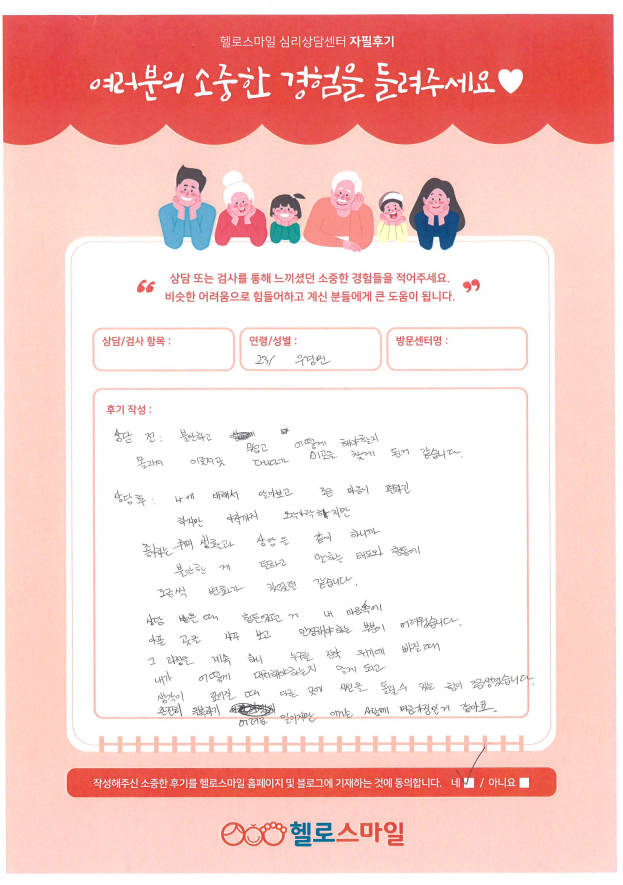 헬로스마일 심리상담센터 자필후기
여러분의 소중한 경험을 들려주세요
상담 또는 검사를 통해 느끼셨던 소중한 경험들을 적어주세요.
비슷한 어려움으로 힘들어하고 계신 분들에게 큰 도움이 됩니다.
상담/검사 항목 :
연령/성별 :
방문센터명 :
23/
후기 작성 :
상담 전 : 불안하고 무섭고 어떻게 해야할지
몰라서 이곳저곳 다니다가 이곳을 찾게 된거 같습니다.
상담 후 : 나에 대해서 알아보고 조금 마음이 편하긴
하지만 아직까지 오락가락 하지만
상담을 같이 하니까
불안한 게 덜하고 말하는 태도와 행동에
조금씩 변화가 같습니다.
상담 받을 때 힘든었던 거 내 마음속에
아픈 곳을 자꾸 보고 인정해야 하는 부분이 어려웠습니다.
그 과정은 계속 하니 위기에 빠질 때
내가 어떻게 대처해야하는지 알게 되고
생각이 깊어질 때 다른 곳에 시선을 돌릴 수 있는 힘이 조금 생겼습니다.
어려운 일이지만 사람에
작성해주신 소중한 후기를 헬로스마일 홈페이지 및 블로그에 기재하는 것에 동의합니다. 네 / 아니요
헬로스마일